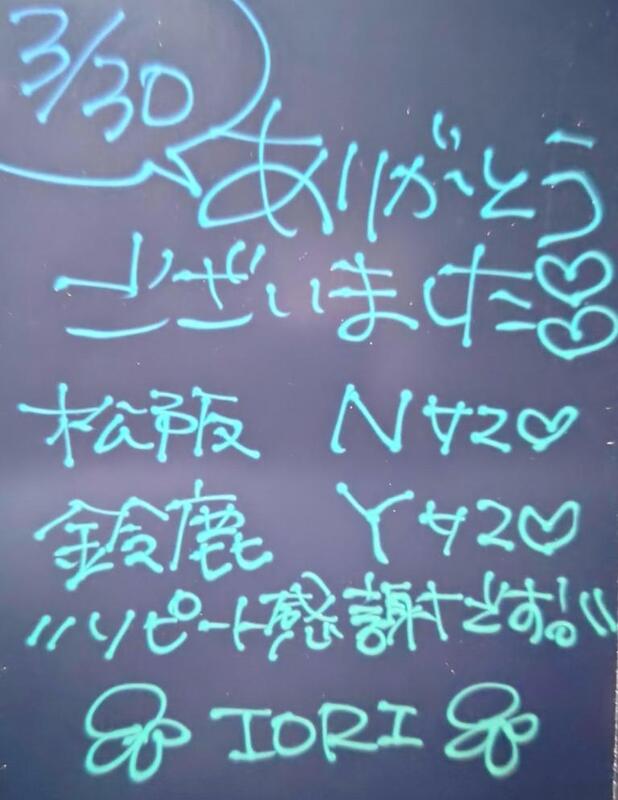 3/30
ありがとう
ございました♡♡
松阪 Nサマ♡
鈴鹿 Yサマ♡
"リピート感謝です!!"
IORI